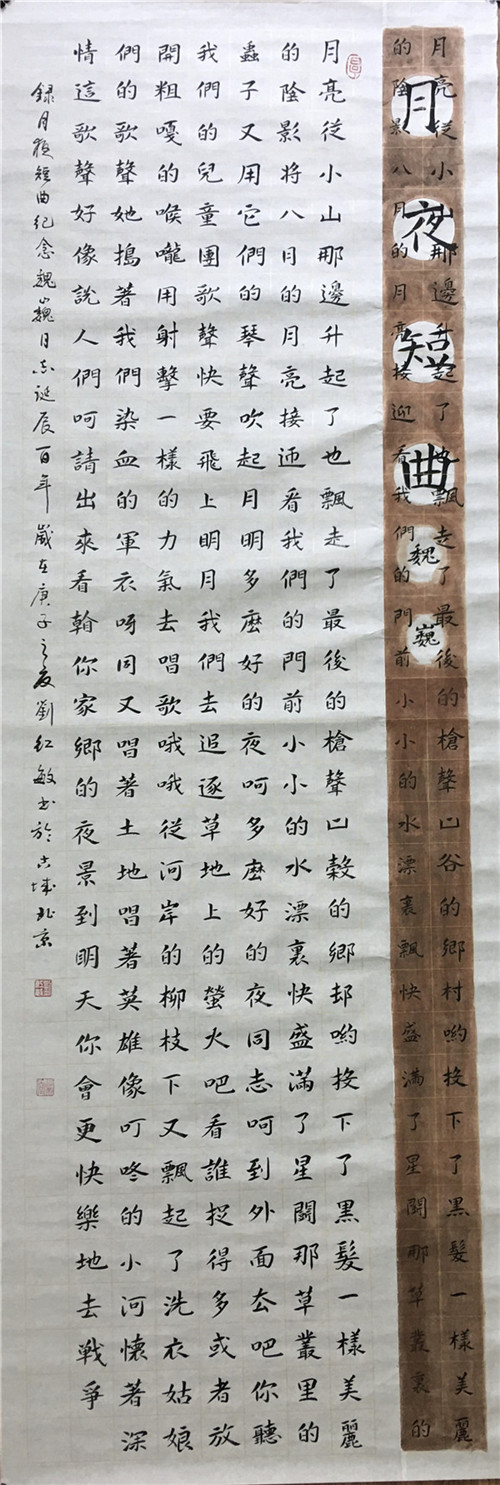 月夜短曲
魏巍
月亮從小山那邊升起了也飄走了最後的槍聲山谷的鄉村喲投下了黑髮一樣美麗
的陰影八月的月亮接迎看我們的門前小小的水漂裏飄快盛滿了星鬭那草叢裏的
月亮從小山那邊升起了也飄走了最後的槍聲山穀的鄉邨喲投下了黑髮一樣美麗
的陰影將八月的月亮接迊看我們的門前小小的水漂裏快盛滿了星鬭那草叢里的
蟲子又用它們的琴聲吹起月明多麽好的夜呵多麽好的夜同志呵到外面去吧你聽
我們的兒童團歌聲快要飛上明月我們去追逐草地上的螢火吧看誰捉得多或者放
開粗嗄的喉嚨用射擊一樣的力氣去唱歌哦哦從河岸的柳枝下又飄起了洗衣姑娘
們的歌聲她搗著我們染血的軍衣呀同又唱著土地唱著英雄像叮咚的小河懷著深
情這歌聲好像說人們呵請出來看翰你家鄉的夜景到明天你會更快樂地去戰爭
錄月夜短曲紀念魏巍同志誕辰百年歲在庚子之夏劉紅敏書於古城北京